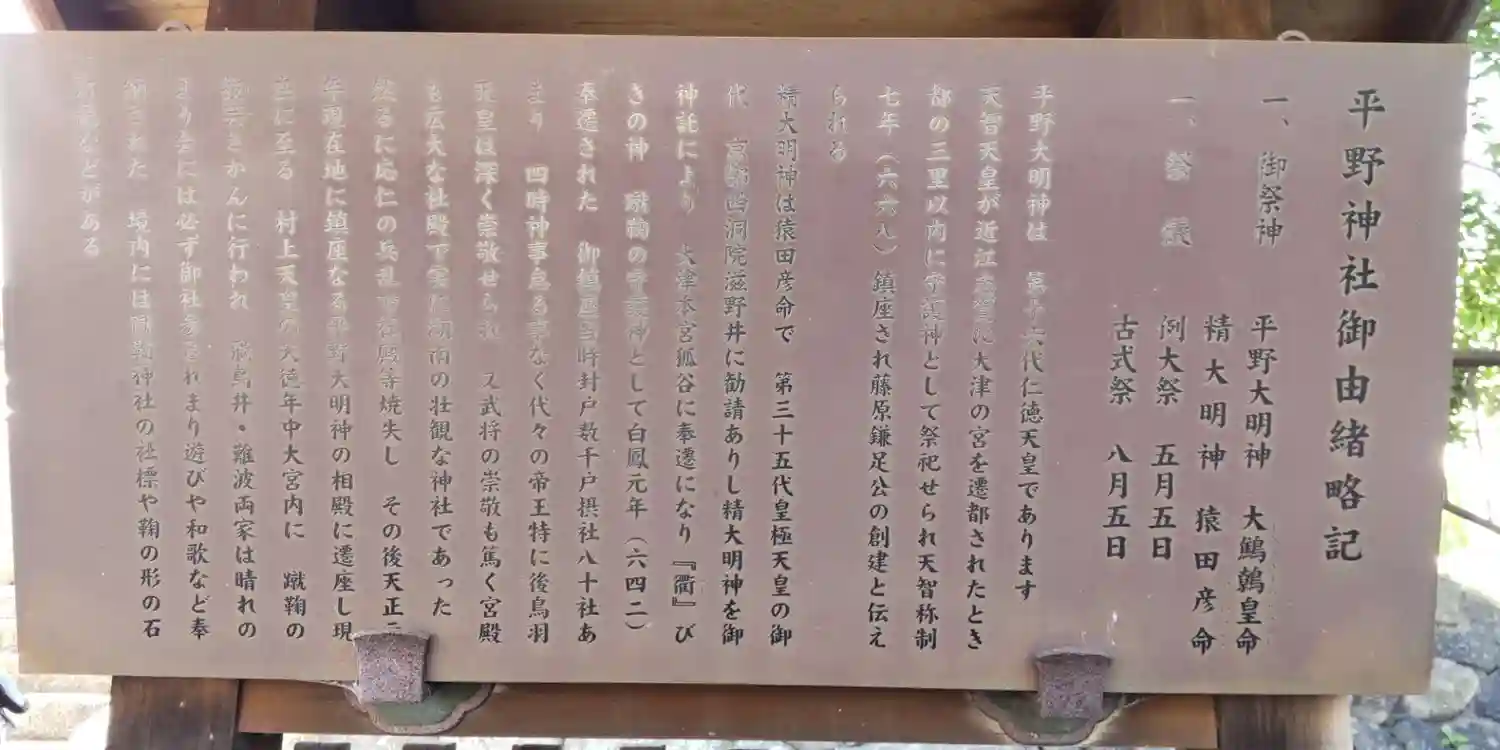 平野神社御由緒略記
一、御祭神　平野大明神　大鷦鷯皇命
精大明神　猿田彦命
一、祭　儀　例大祭　五月五日
古式祭　八月五日
平野大明神は　第十六代仁徳天皇であります
天智天皇が近江志賀に大津の宮を遷都されたとき
都の三里以内に守護神として祭祀せられ天智称制
七年（六六八）鎮座され藤原鎌足公の創建と伝え
られる
精大明神は猿田彦命で　第三十五代皇極天皇の御
代　京都西洞院滋野井に勧請ありし精大明神を御
神託により　大津本宮狐谷に奉遷になり『衢』び
きの神　蹴鞠の守護神として白鳳元年（六四二）
奉遷された　御鎮座当時封戸数千戸摂社八十社あ
まり　四時神事怠る事なく代々の帝王特に後鳥羽
天皇は深く崇敬せられ　又武将の崇敬も篤く宮殿
も広大な社殿で実に湖南の壮観な神社であった
然るに応仁の兵乱で社殿等焼失し　その後天正二
年現在地に鎮座なる平野大明神の相殿に遷座し現
在に至る　村上天皇の天徳年中大宮内に　蹴鞠の
御会さかんに行われ　飛鳥井・難波両家は晴れの
まり会には必ず御社参されまり遊びや和歌など奉
納された　境内には蹴鞠神社の社標や鞠の形の石
などがある